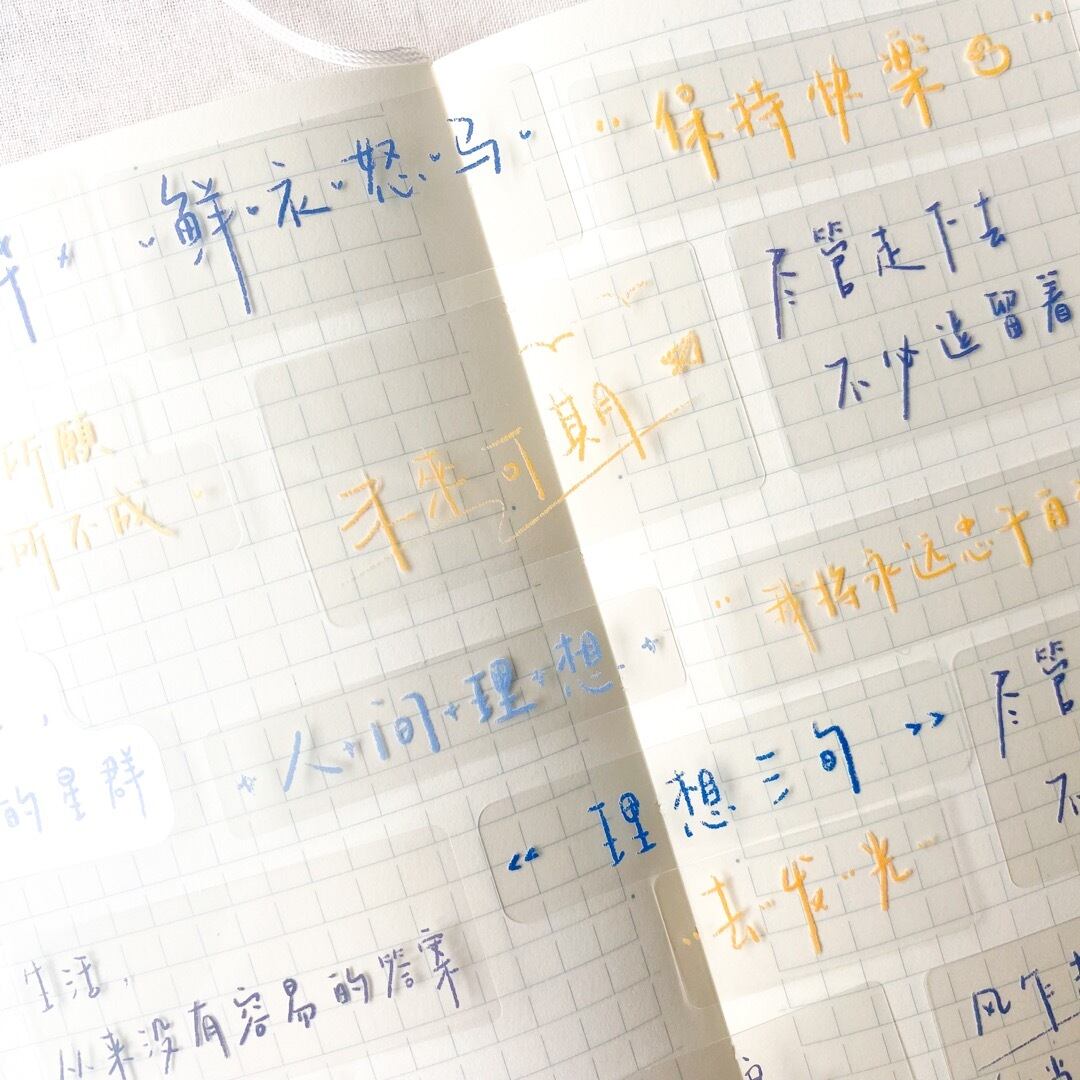 鲜衣怒马
所願
所不成
未来可期
人间理想
的星群
生活，
从来没有容易的答案
保持快楽
尽管走下去
不必逗留着
我将永远忠于自
理想三旬
去发光
尽管
不
风乍